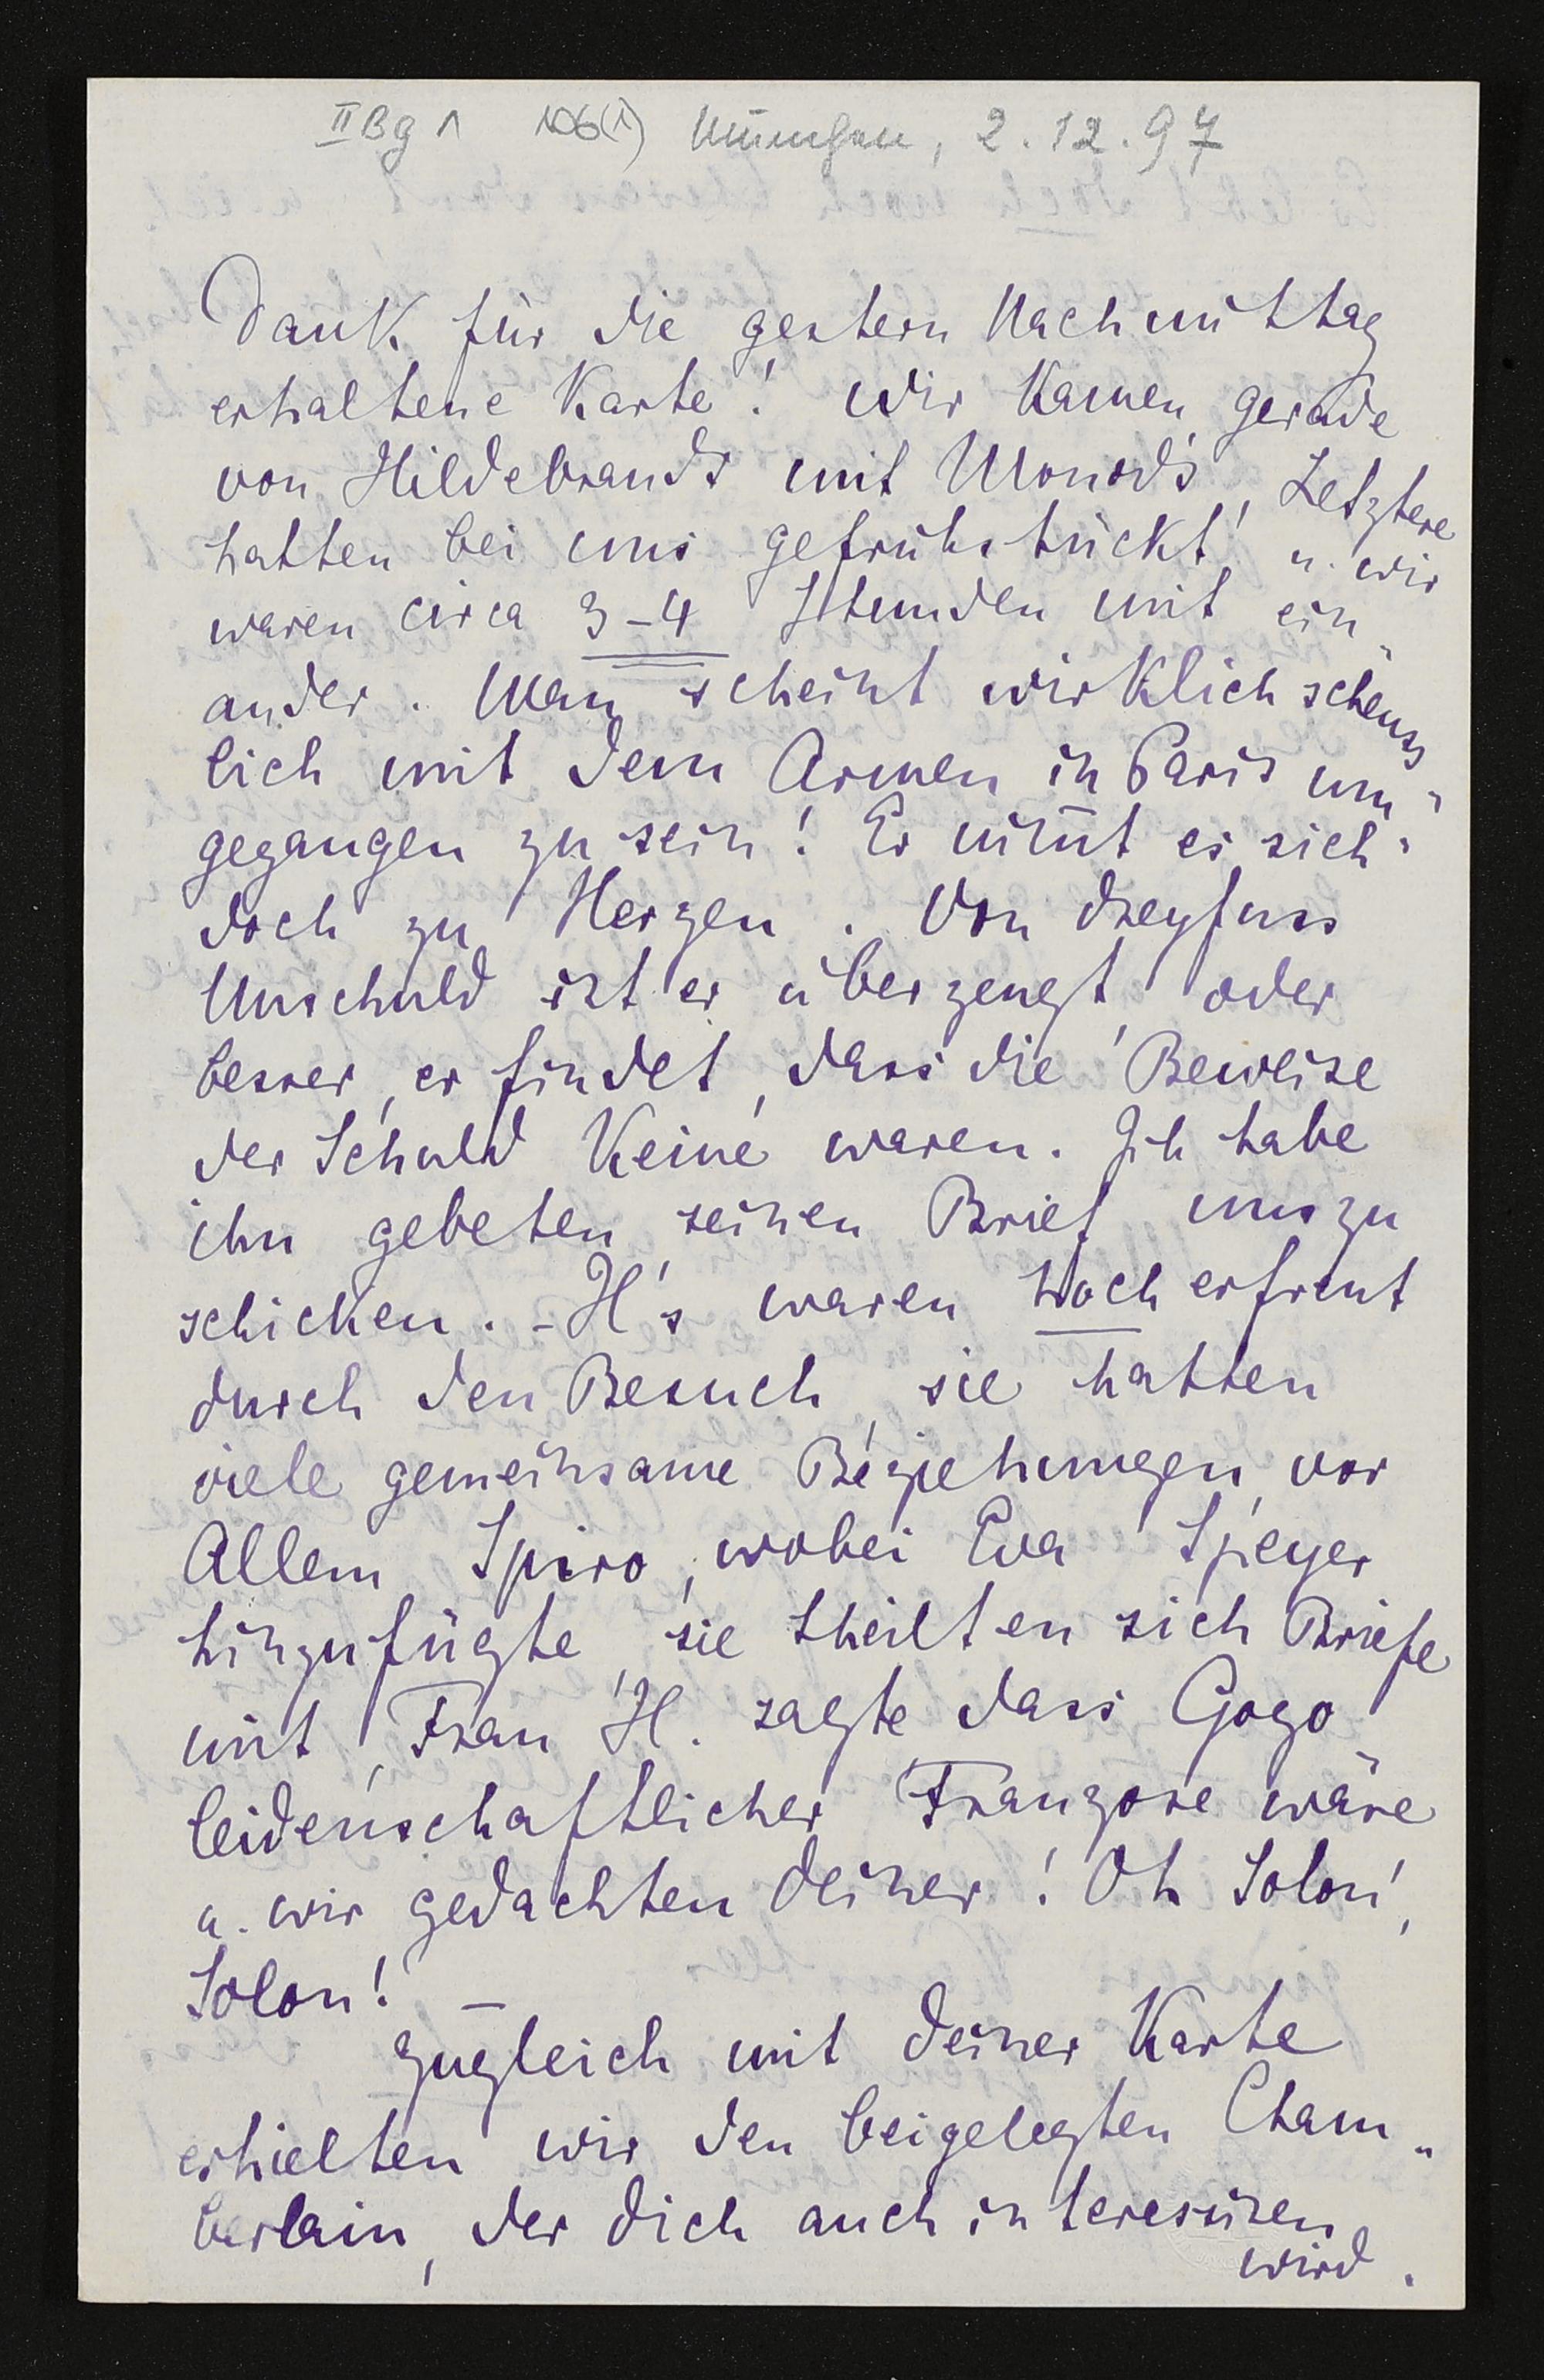 II Bg 1 106(1) München, 2.12.97
Dank für die gestern Nachmittag
erhaltene Karte! Wir kamen gerade
von Hildebrands mit Monod's, Letztere
hatten bei uns gefrühstückt, u. wir
waren circa 3-4 Stunden mit ein„
ander. Man scheint wirklich scheuss„
lich mit dem Armen in Paris um„
gegangen zu sein! Er nim̄t es sich
doch zu Herzen. Von Dreyfuss
Unschuld ist er überzeugt, oder
besser, er findet, dass die Beweise
der Schuld Keine waren. Ich habe
ihn gebeten, seinen Brief uns zu
schicken. - H's waren hoch erfreut
durch den Besuch, sie hatten
viele gemeinsame Beziehungen, vor
Allem Spiro, wobei Eva Speyer
hinzufügte, sie theilten sich Briefe
mit, Frau H. sagte dass Gogo
leidenschaftlicher Franzose wäre
u. wir gedachten deiner! Oh Solon,
Solon! –
Zugleich mit deiner Karte
erhielten wir den beigelegten Cham„
berlain, der dich auch interessiren
wird.